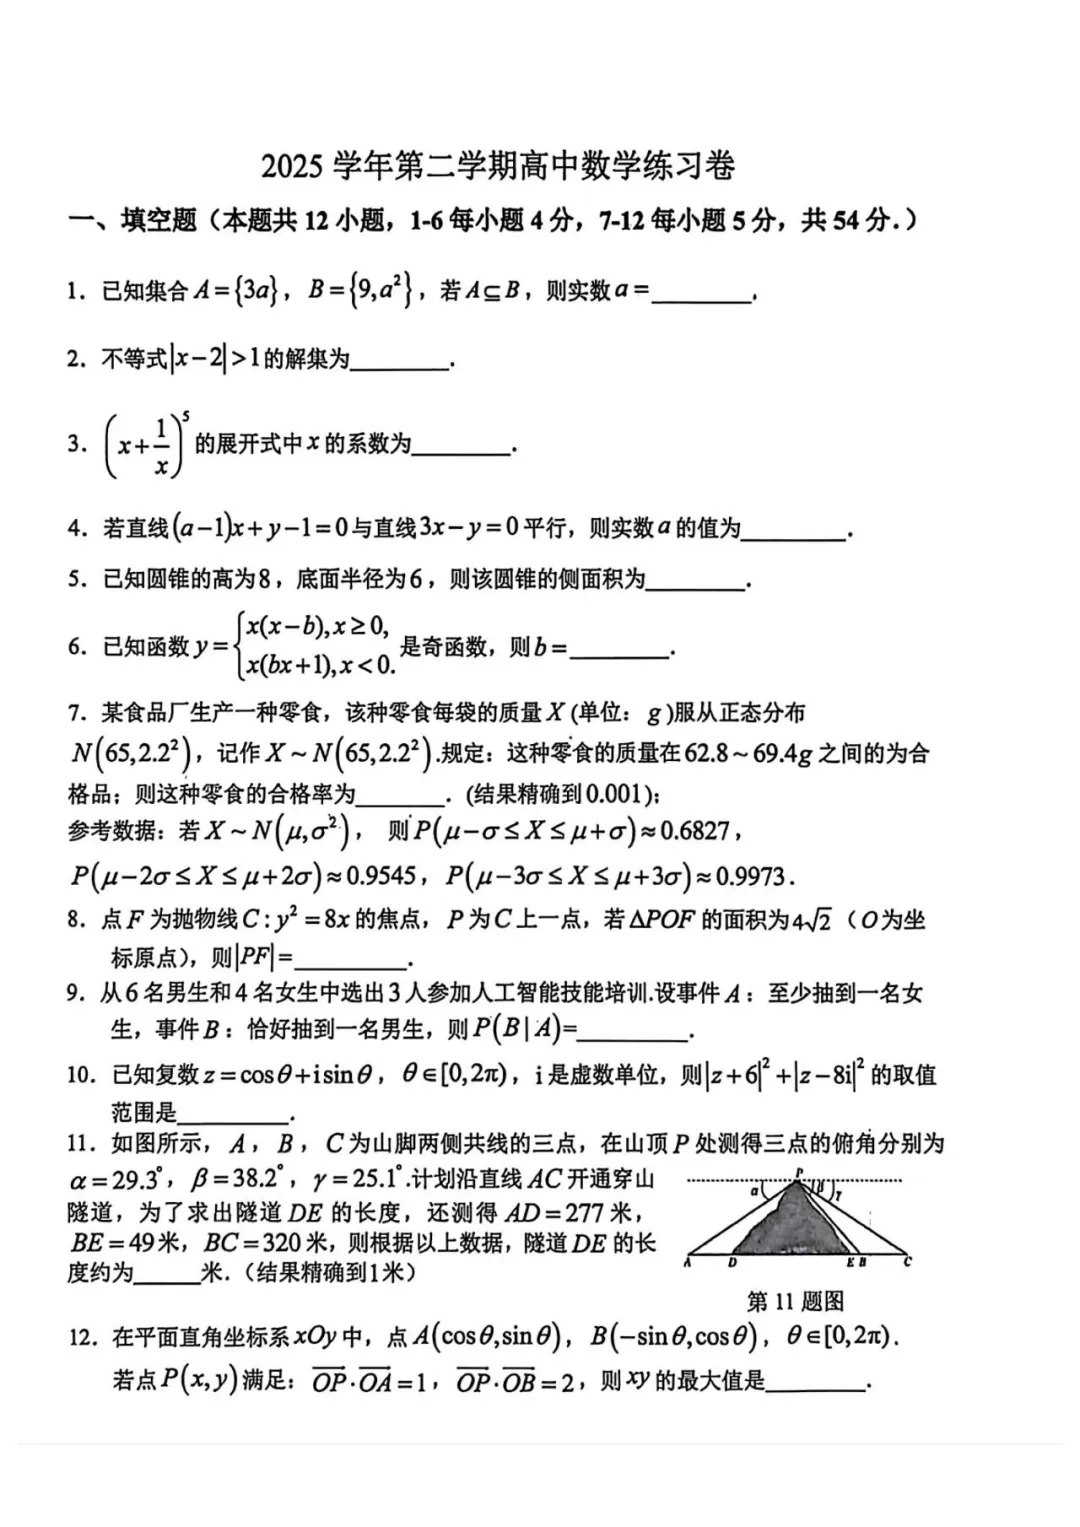 2025 学年第二学期高中数学练习卷
一、填空题（本题共 12 小题，1-6 每小题 4 分，7-12 每小题 5 分，共 54 分.）
1. 已知集合 A={3a}，B={9,a²}，若 A⊆B，则实数 a=________.
2. 不等式|x−2|>1的解集为________.
3. (x+1/x)⁵ 的展开式中 x 的系数为________.
4. 若直线(a−1)x+y−1=0与直线3x−y=0平行，则实数 a 的值为________.
5. 已知圆锥的高为8，底面半径为6，则该圆锥的侧面积为________.
6. 已知函数 y={x(x−b),x≥0, x(bx+1),x<0. 是奇函数，则 b=________.
7. 某食品厂生产一种零食，该种零食每袋的质量 X (单位：g)服从正态分布
N(65,2.2²)，记作 X~N(65,2.2²).规定：这种零食的质量在62.8~69.4g 之间的为合
格品；则这种零食的合格率为________.(结果精确到0.001)；
参考数据：若 X~N(μ,σ²)， 则 P(μ−σ≤X≤μ+σ)≈0.6827，
P(μ−2σ≤X≤μ+2σ)≈0.9545，P(μ−3σ≤X≤μ+3σ)≈0.9973.
8. 点 F 为抛物线 C:y²=8x 的焦点，P 为 C 上一点，若 △POF 的面积为4√2（O为坐
标原点），则|PF|=________.
9. 从6名男生和4名女生中选出3人参加人工智能技能培训.设事件 A：至少抽到一名女
生，事件 B：恰好抽到一名男生，则 P(B|A)=________.
10. 已知复数 z=cosθ+isinθ，θ∈[0,2π)，i 是虚数单位，则|z+6|²+|z−8i|² 的取值
范围是________.
11. 如图所示，A，B，C 为山脚两侧共线的三点，在山顶 P 处测得三点的俯角分别为
α=29.3°，β=38.2°，γ=25.1°.计划沿直线 AC 开通穿山
隧道，为了求出隧道 DE 的长度，还测得 AD=277米，
BE=49米，BC=320米，则根据以上数据，隧道 DE 的长
度约为______米.（结果精确到1米）
P
α β γ
A D E B C
第 11 题图
12. 在平面直角坐标系 xOy 中，点 A(cosθ,sinθ)，B(−sinθ,cosθ)，θ∈[0,2π).
若点 P(x,y)满足：OP·OA=1，OP·OB=2，则 xy 的最大值是________.